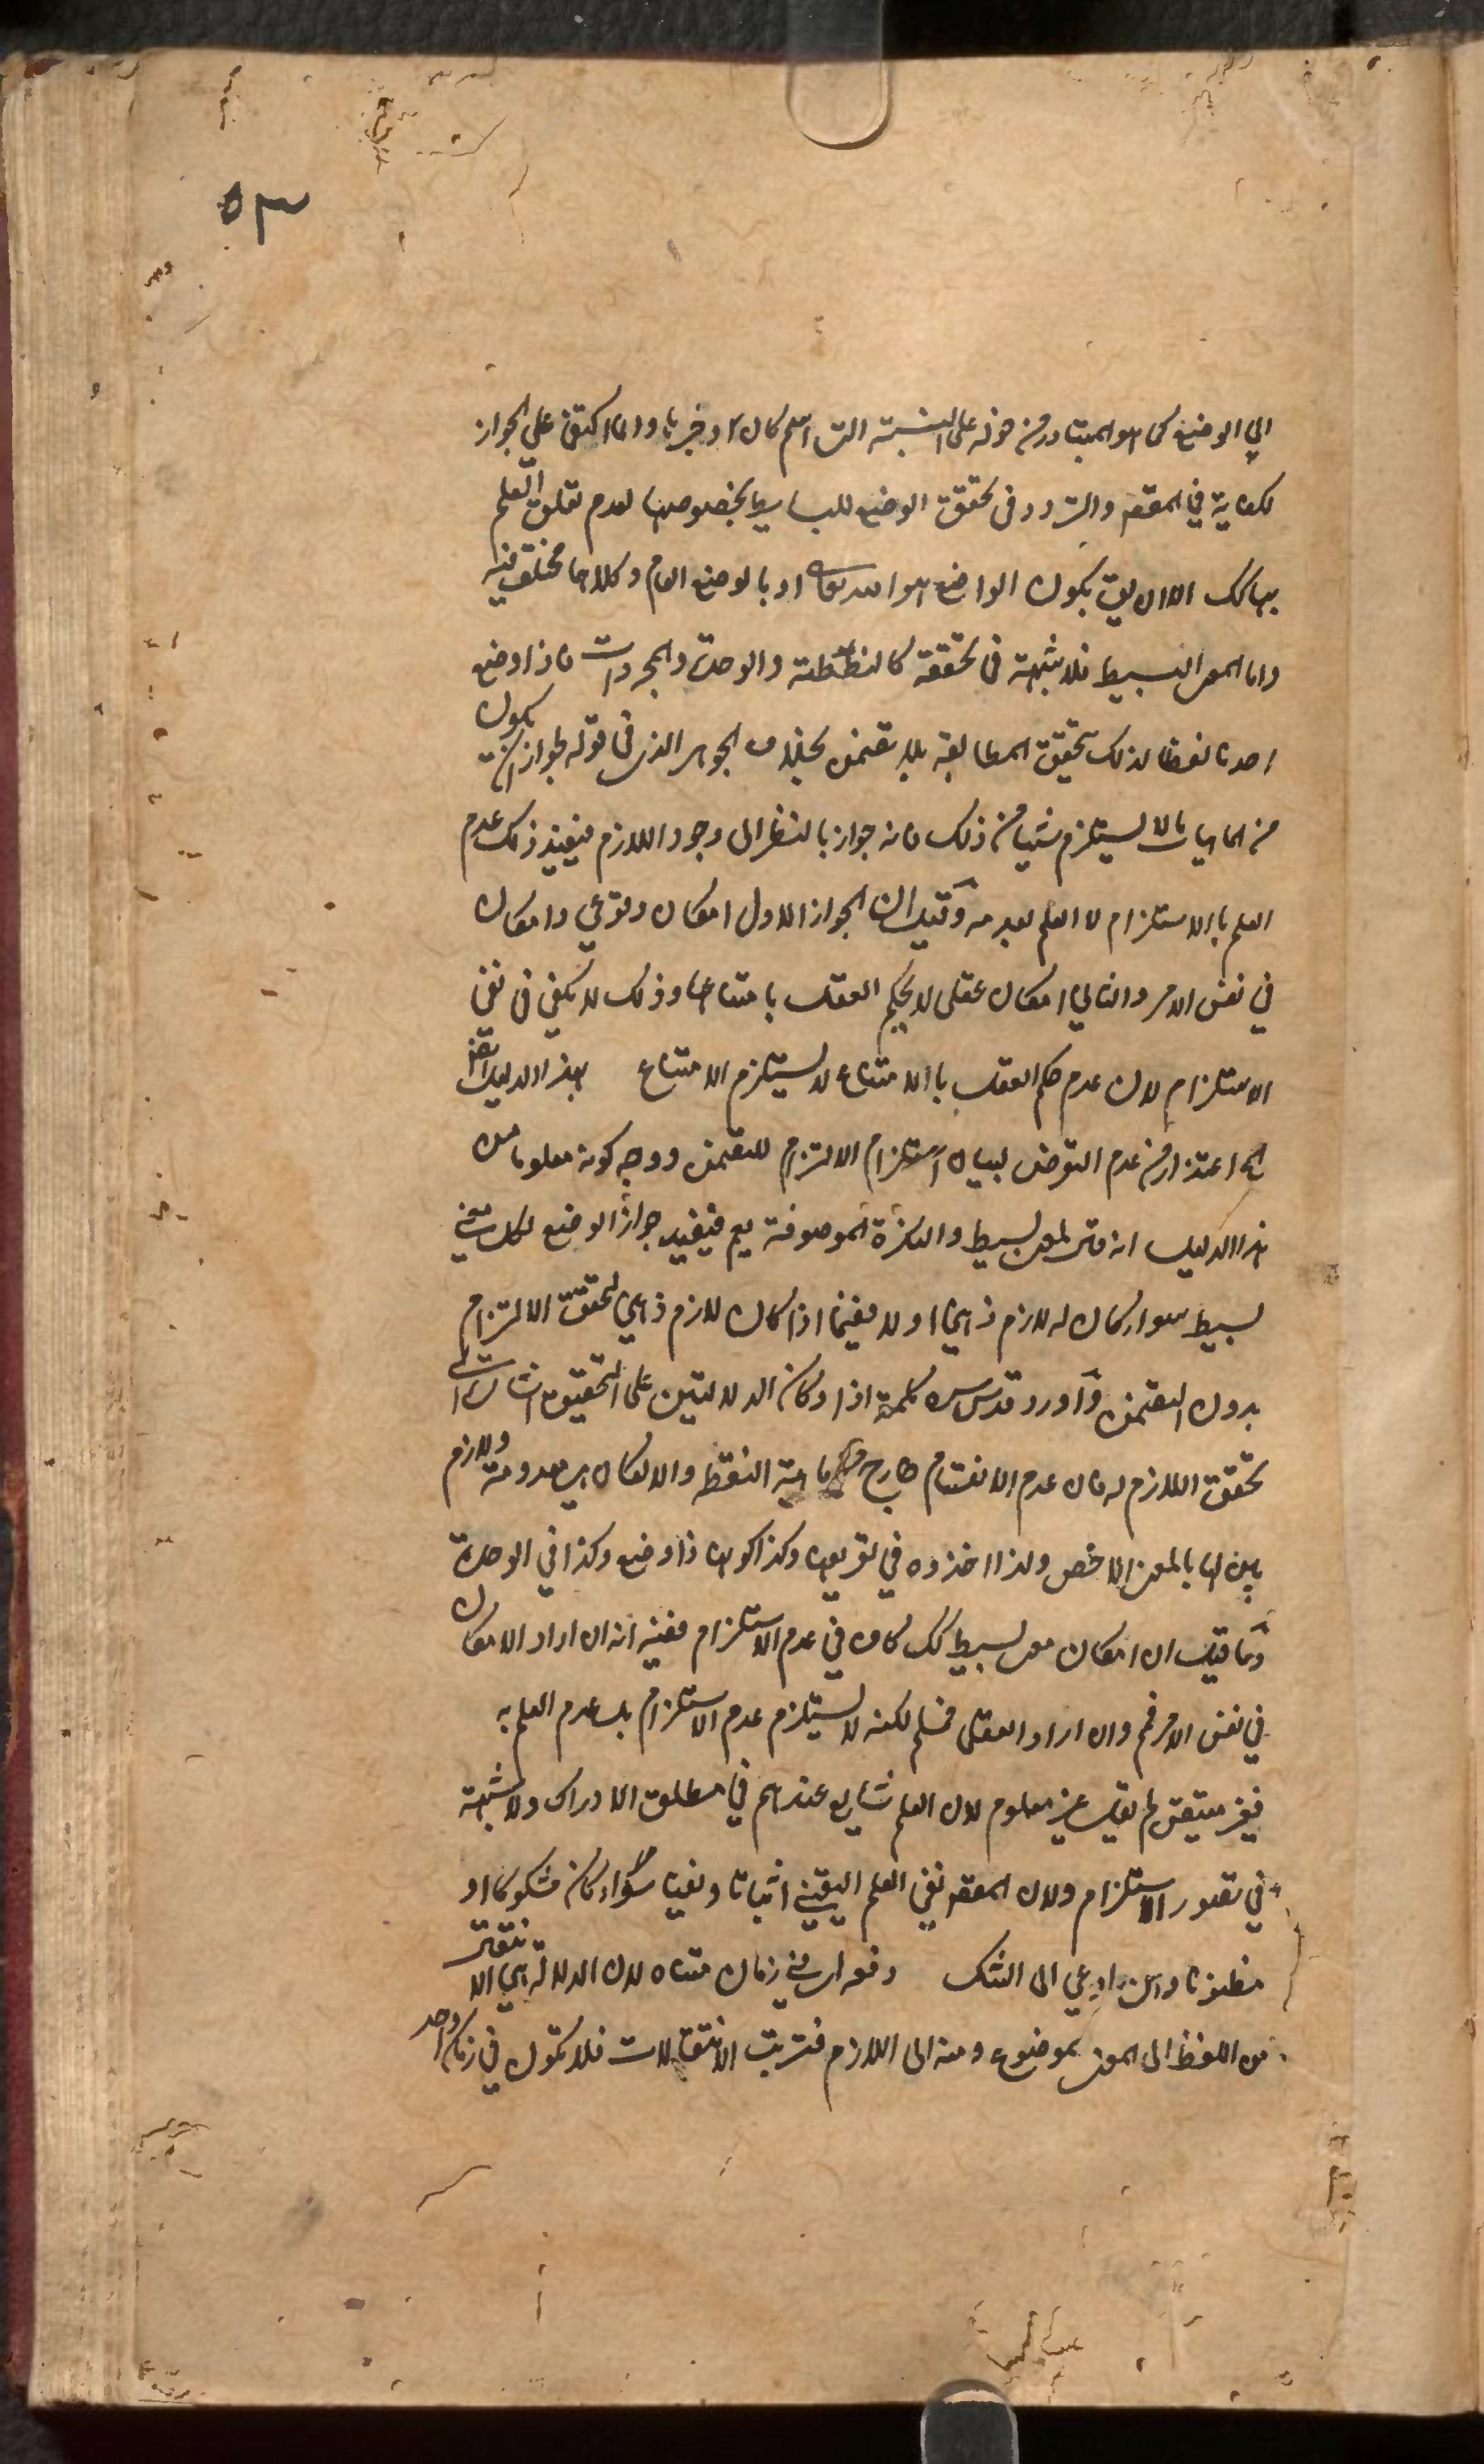 ٥٣
الي الوضع كما هو المتبادر من حرف على النسبة التي اسم كان او خبرها وانما اكتفى على الجواز
لكفاية في المقصد والتردد في تحقق الوضع للبسايط بخصوصها لعدم تعلق العلم
بها كك الا ان يقال بكون الواضع هو الله تعالى او بالوضع العام وكلاهما مختلف فيه
واما المعنى البسيط فلا شبهة في تحققه كالنقطة والوحدة والمجردات فاذا وضع
احدنا لفظا لذلك تحقق المطابقة بلا تضمن بخلاف الجواز الذي في قوله لجواز ان يكون
من الماهيات ما لا يستلزم شيا من ذلك فانه جواز بالنظر الى وجود اللازم فيفيد ذلك عدم
العلم بالاستلزام لا العلم بعدمه وقيل ان الجواز الاول امكان وقوعي وامكان
في نفس الامر والثاني امكان عقلي لا يحكم العقل بامتناعها وذلك لا يكفي في نفي
الاستلزام لان عدم حكم العقل بالامتناع لا يستلزم الامتناع بهذا الدليل ايضا
اعتذار من عدم التعرض لبيان استلزام الالتزام للتضمن ووجه كونه معلوما من
هذا الدليل انه قال لمعنى بسيط والنكرة الموصوفة يعم فيفيد جواز الوضع لكل معنى
بسيط سواء كان له لازم ذهني او لا ففيما اذا كان لازم ذهني تحقق الالتزام
بدون التضمن واورد قدس سره كلمة اذا وكان الدلالتين على التحقيق اشارة الى
تحقق اللازم له فان عدم الانقسام خارج ماهية النقطة والا لكان هي معدومة ولازم
بين لها بالمعنى الاخص ولذا اخذوه في تعريفها وكذا كونها ذا وضع وكذا في الوحدة
وما قيل ان امكان معنى بسيط كك كاف في عدم الاستلزام ففيه انه ان اراد الامكان
في نفس الامر فم وان اراد العقلي فمسلم لكنه لا يستلزم عدم الاستلزام بل عدم العلم به
فغير متيقن لم يقل غير معلوم لان العلم شايع عندهم في مطلق الادراك ولا شبهة
في تصور الاستلزام ولان المقصد نفي العلم اليقيني اثباتا ونفيا سواء كان مشكوكا او
مظنونا داعي الى الشك دفعه اي في زمان متناه لان الدلالة هي الانتقال
من اللفظ الى المعنى الموضوع ومنه الى اللازم فترتب الانتقالات فلا تكون في زمان واحد